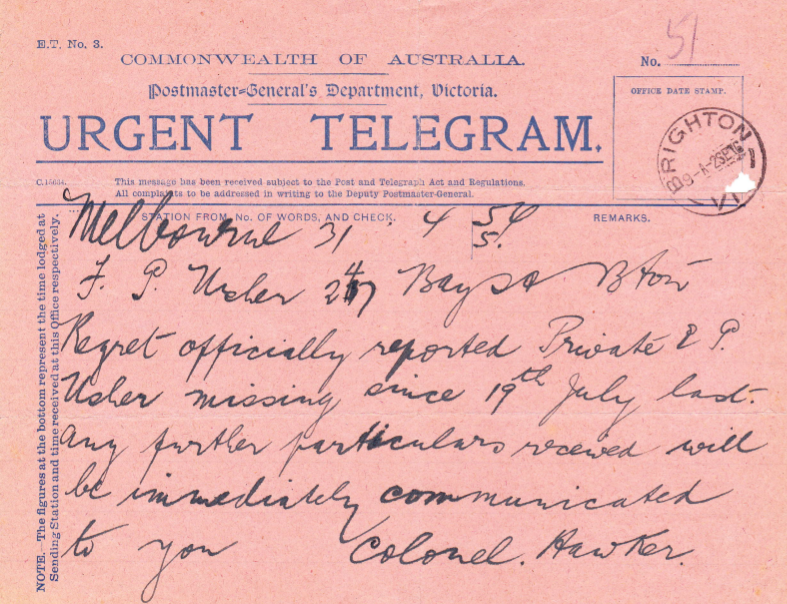 E.T. No. 3.
COMMONWEALTH OF AUSTRALIA.
No. 51
Postmaster-General's Department, Victoria.
OFFICE DATE STAMP.
URGENT TELEGRAM.
BRIGHTON
VIC
C.15634.
This message has been received subject to the Post and Telegraph Act and Regulations.
All complaints to be addressed in writing to the Deputy Postmaster-General.
STATION FROM, No. OF WORDS, AND CHECK.
REMARKS.
Melbourne 31 4 54
5.
F. P. Usher 247 Bay St Bton
Regret officially reported Private E P.
Usher missing since 19th July last.
Any further particulars received will
be immediately communicated
to you Colonel. Hawker.
NOTE.—The figures at the bottom represent the time lodged at
Sending Station and time received at this Office respectively.